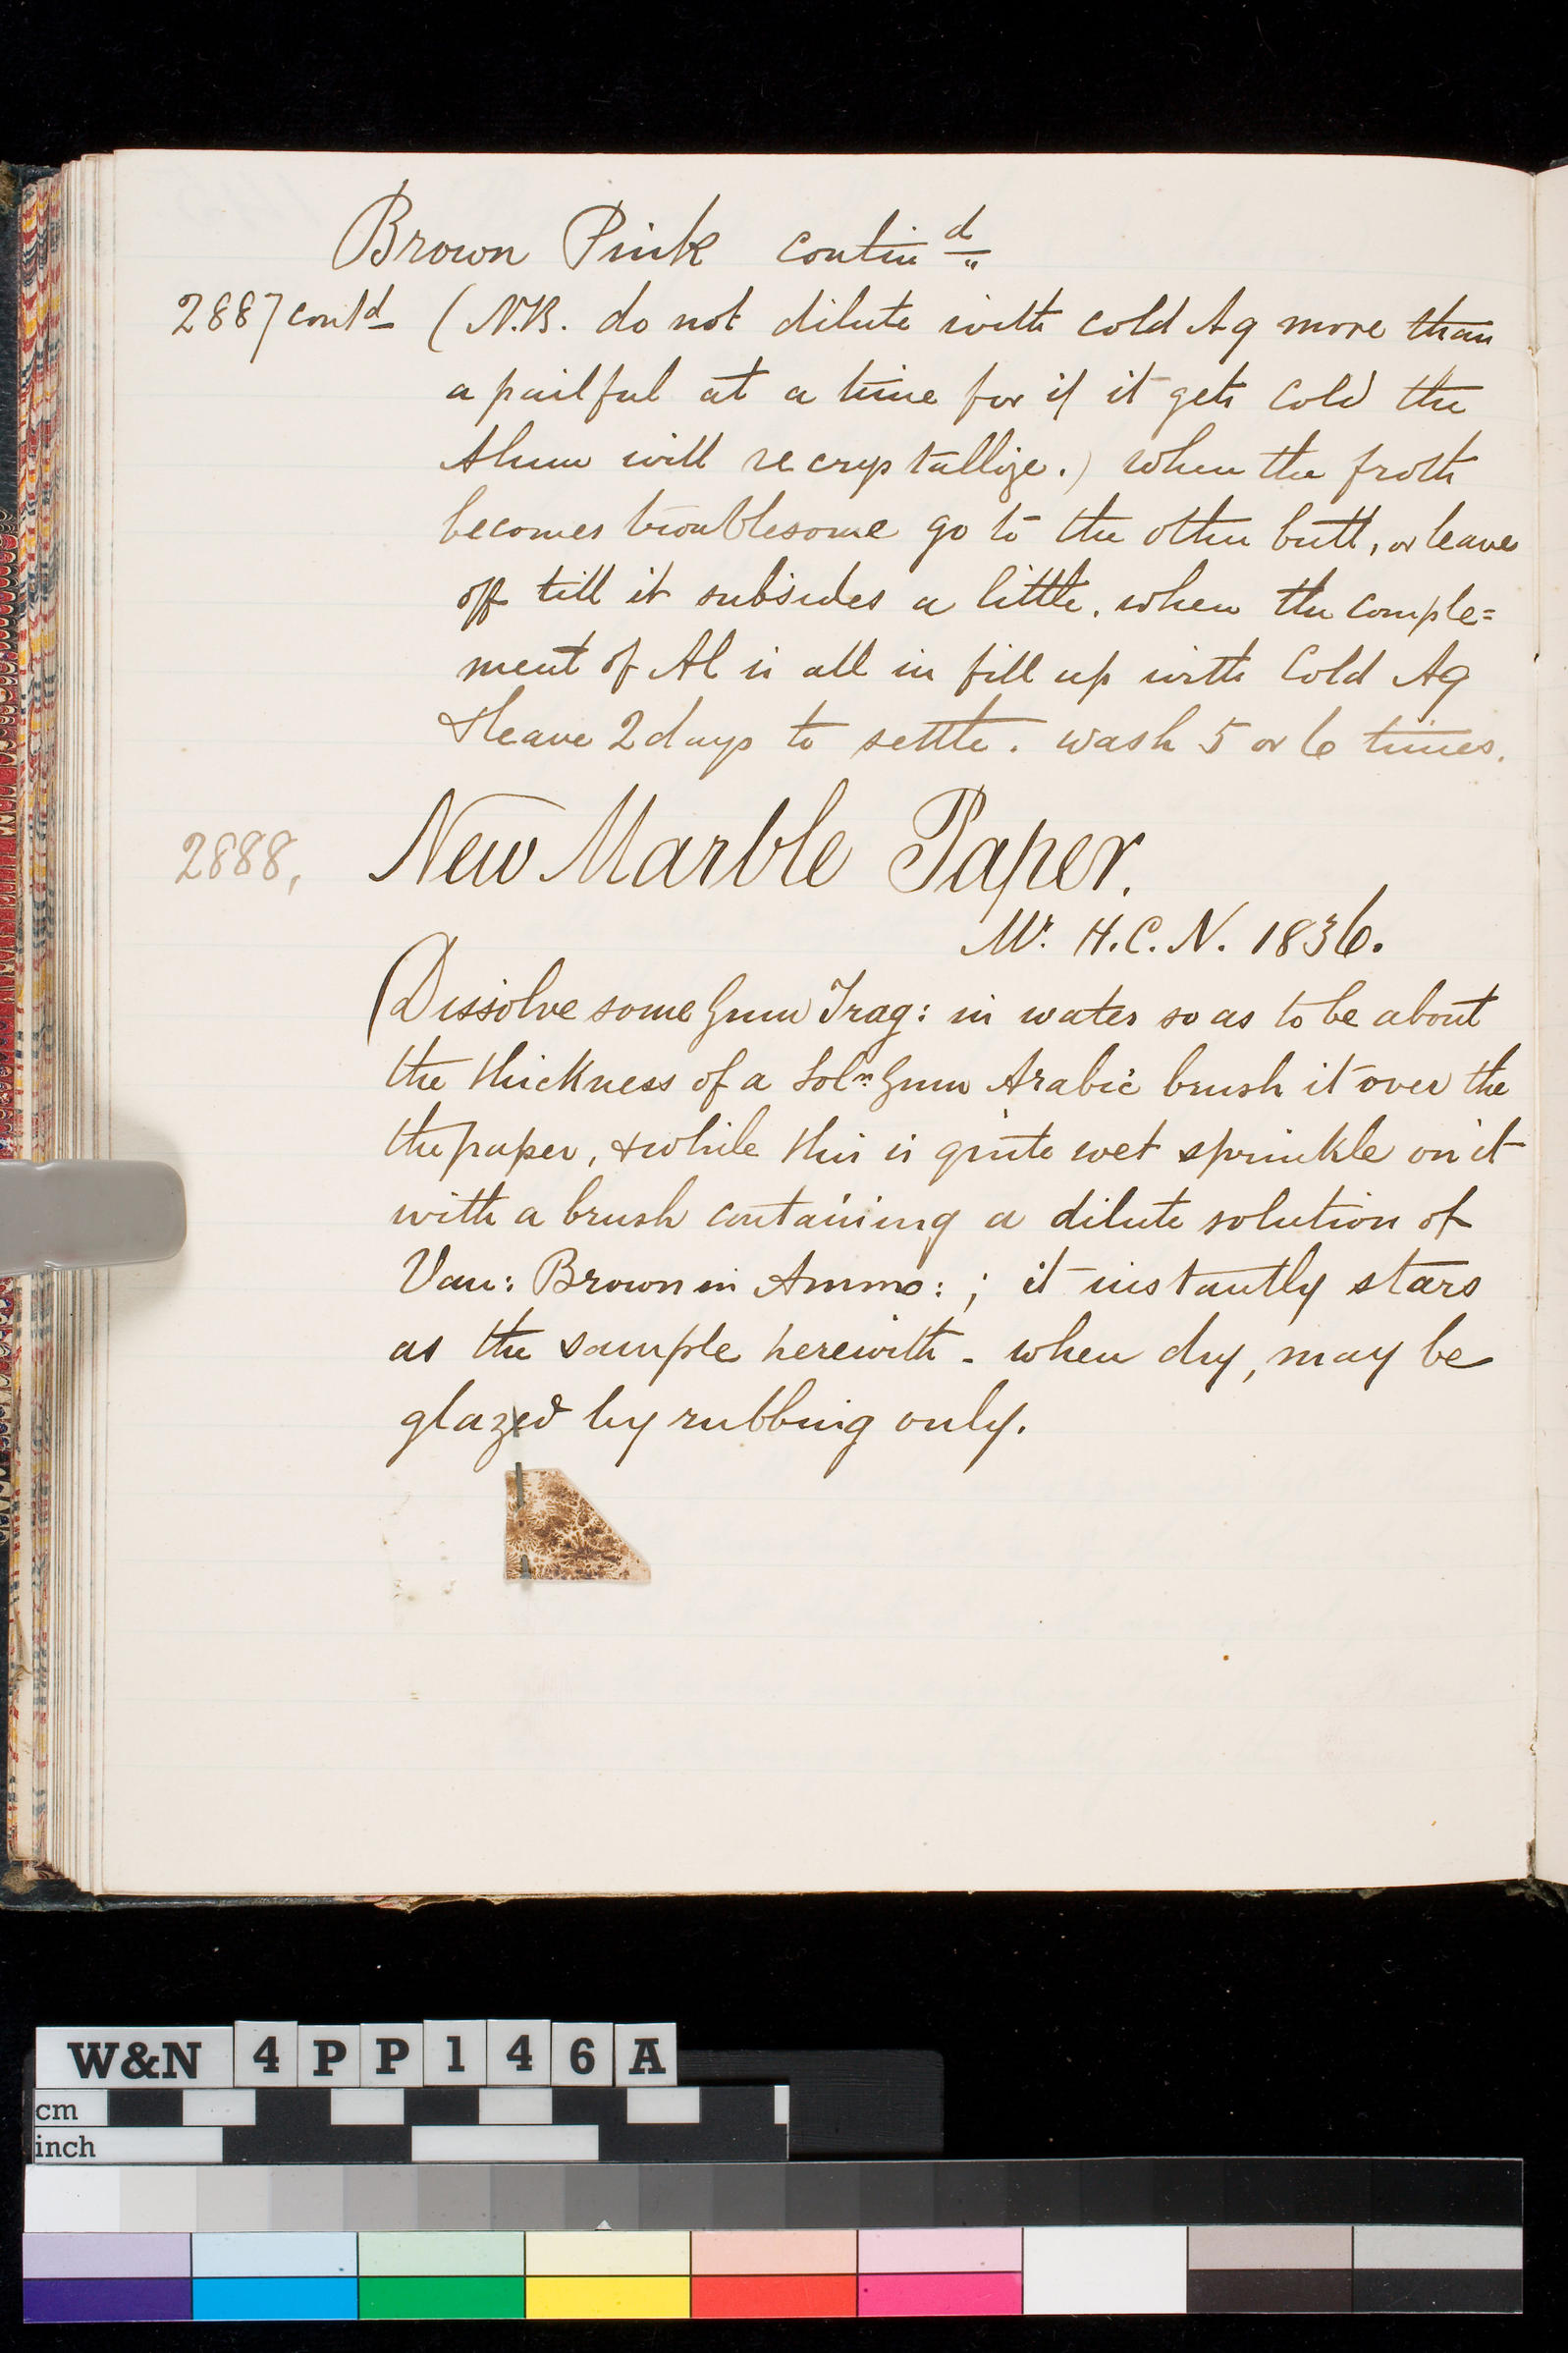 Brown Pink contin d
2887 contd (N.B. do not dilute with cold Aq more than
a pailful at a time for if it gets cold the
Alum will recrystallize.) when the froth
becomes troublesome go to the other butt, or leave
off till it subsides a little. when the comple=
ment of Al is all in fill up with Cold Aq
& leave 2 days to settle. wash 5 or 6 times.
2888, New Marble Paper.
Mr. H.C.N. 1836.
(Dissolve some Gum Trag: in water so as to be about
the thickness of a Soln Gum Arabic brush it over the
the paper, & while this is quite wet sprinkle on it
with a brush containing a dilute solution of
Van: Brown in Ammo: ; it instantly stars
as the sample herewith - when dry, may be
glazed by rubbing only.
W&N 4PP146A
cm
inch